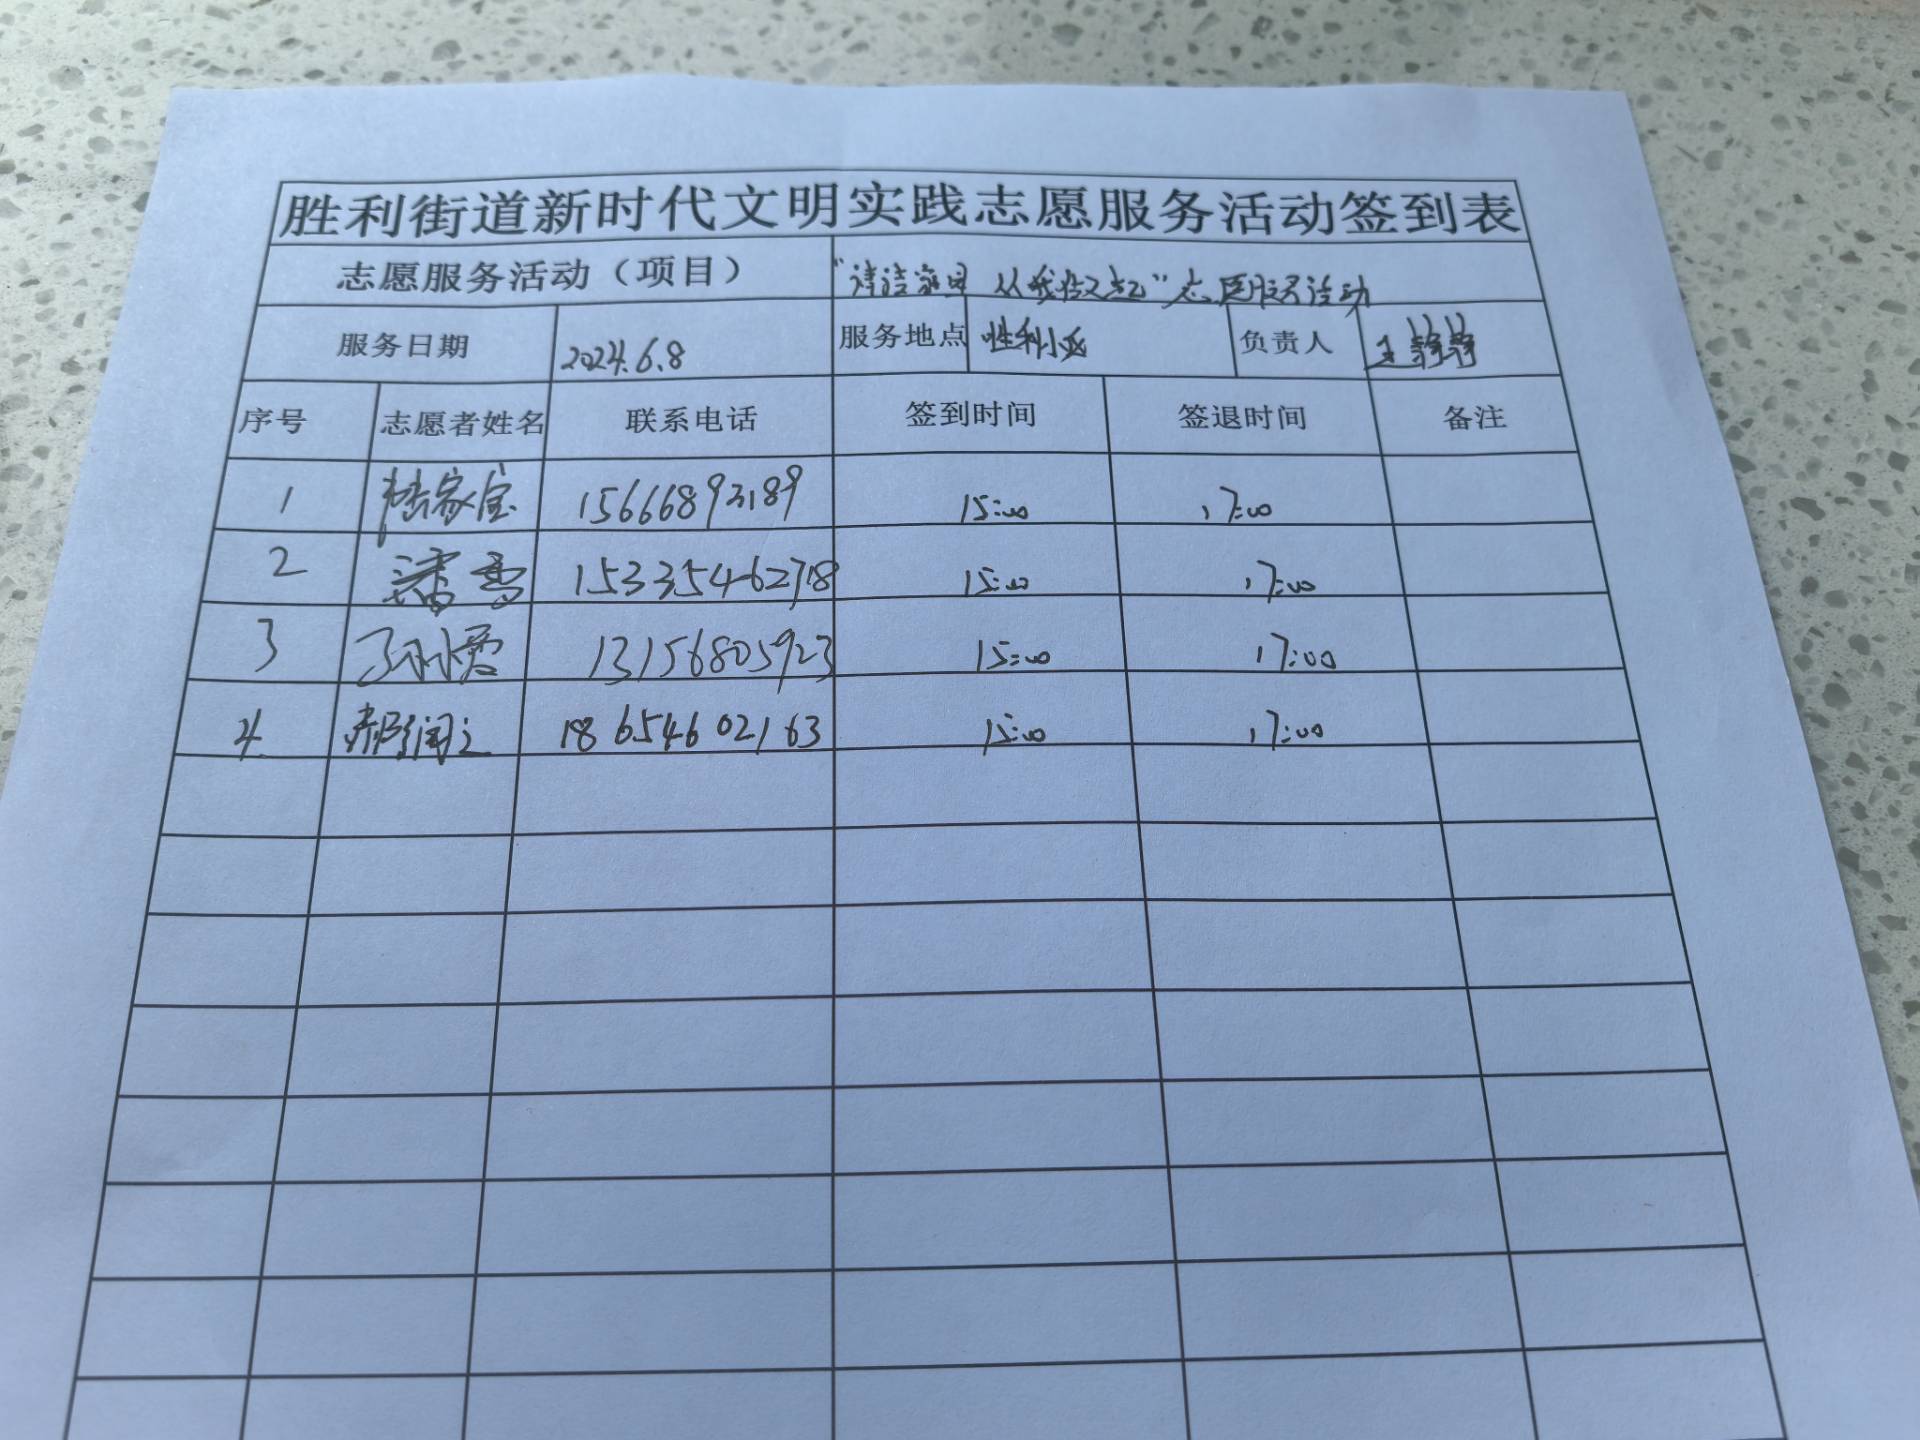 胜利街道新时代文明实践志愿服务活动签到表
志愿服务活动（项目） "清洁家园 从我做起"志愿服务活动
服务日期 2024.6.8 服务地点 胜利小区 负责人 王静静
序号 志愿者姓名 联系电话 签到时间 签退时间 备注
1 家宝 15666893189 15:00 17:00
2 潘雪 15335462718 15:00 17:00
3 13156805923 15:00 17:00
4 郝润之 18654602163 15:00 17:00